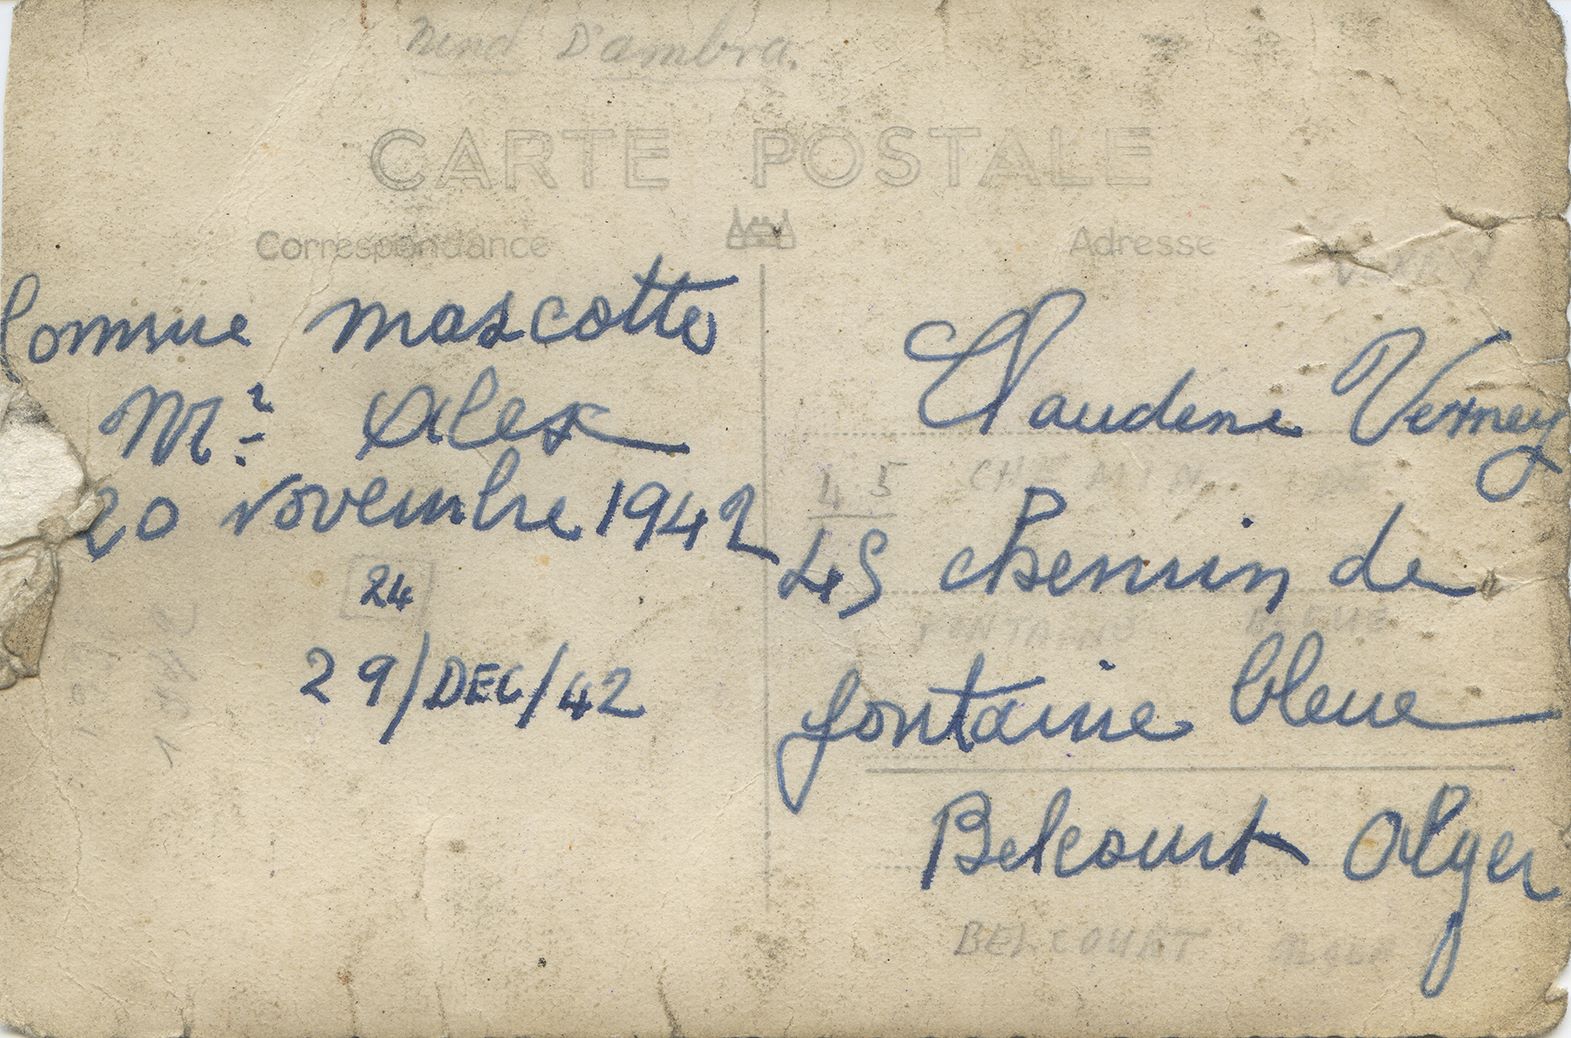 D'ambra.
CARTE POSTALE
Correspondance
Adresse
Comme mascotte
Mr Alex
20 novembre 1942
24
29/DEC/42
Claudine Verney
45 CHEMIN DE
45 chemin de
FONTAINE BLEUE
fontaine bleue
Belcourt Alger
BELCOURT